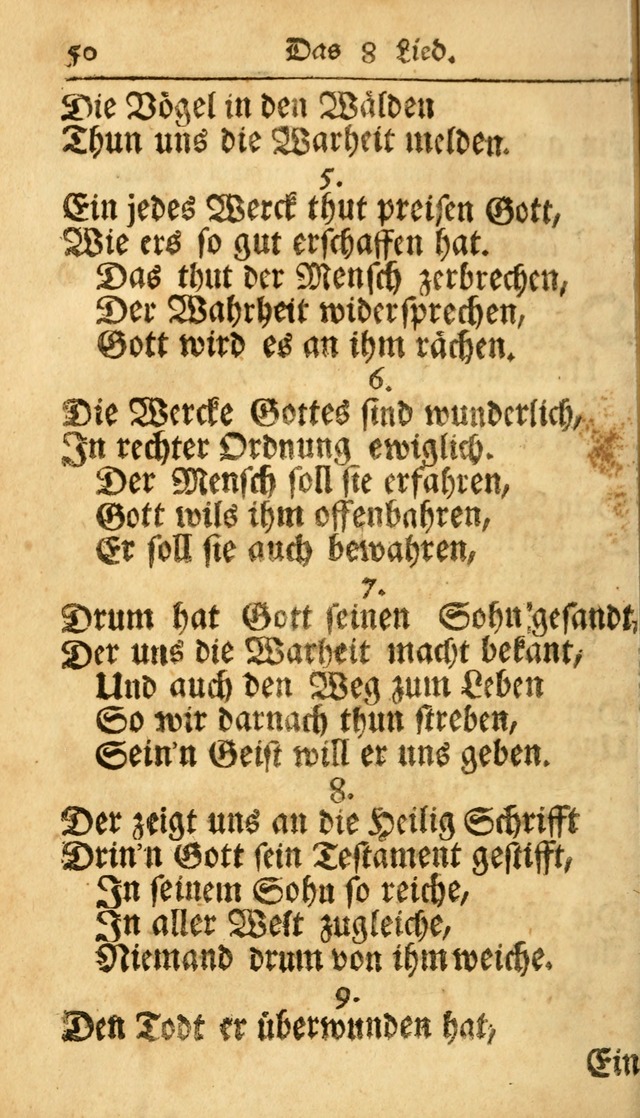 50 Das 8 Lied.
Die Vögel in den Wälden
Thun uns die Warheit melden.
5.
Ein jedes Werck thut preisen Gott,
Wie ers so gut erschaffen hat.
Das thut der Mensch zerbrechen,
Der Wahrheit widersprechen,
Gott wird es an ihm rächen.
6.
Die Wercke Gottes sind wunderlich,
In rechter Ordnung ewiglich.
Der Mensch soll sie erfahren,
Gott wils ihm offenbahren,
Er soll sie auch bewahren,
7.
Drum hat Gott seinen Sohn gesandt,
Der uns die Warheit macht bekant,
Und auch den Weg zum Leben
So wir darnach thun streben,
Sein'n Geist will er uns geben.
8.
Der zeigt uns an die Heilig Schrifft
Drin'n Gott sein Testament gestifft,
In seinem Sohn so reiche,
In aller Welt zugleiche,
Niemand drum von ihm weiche.
9.
Den Todt er überwunden hat,
Ein